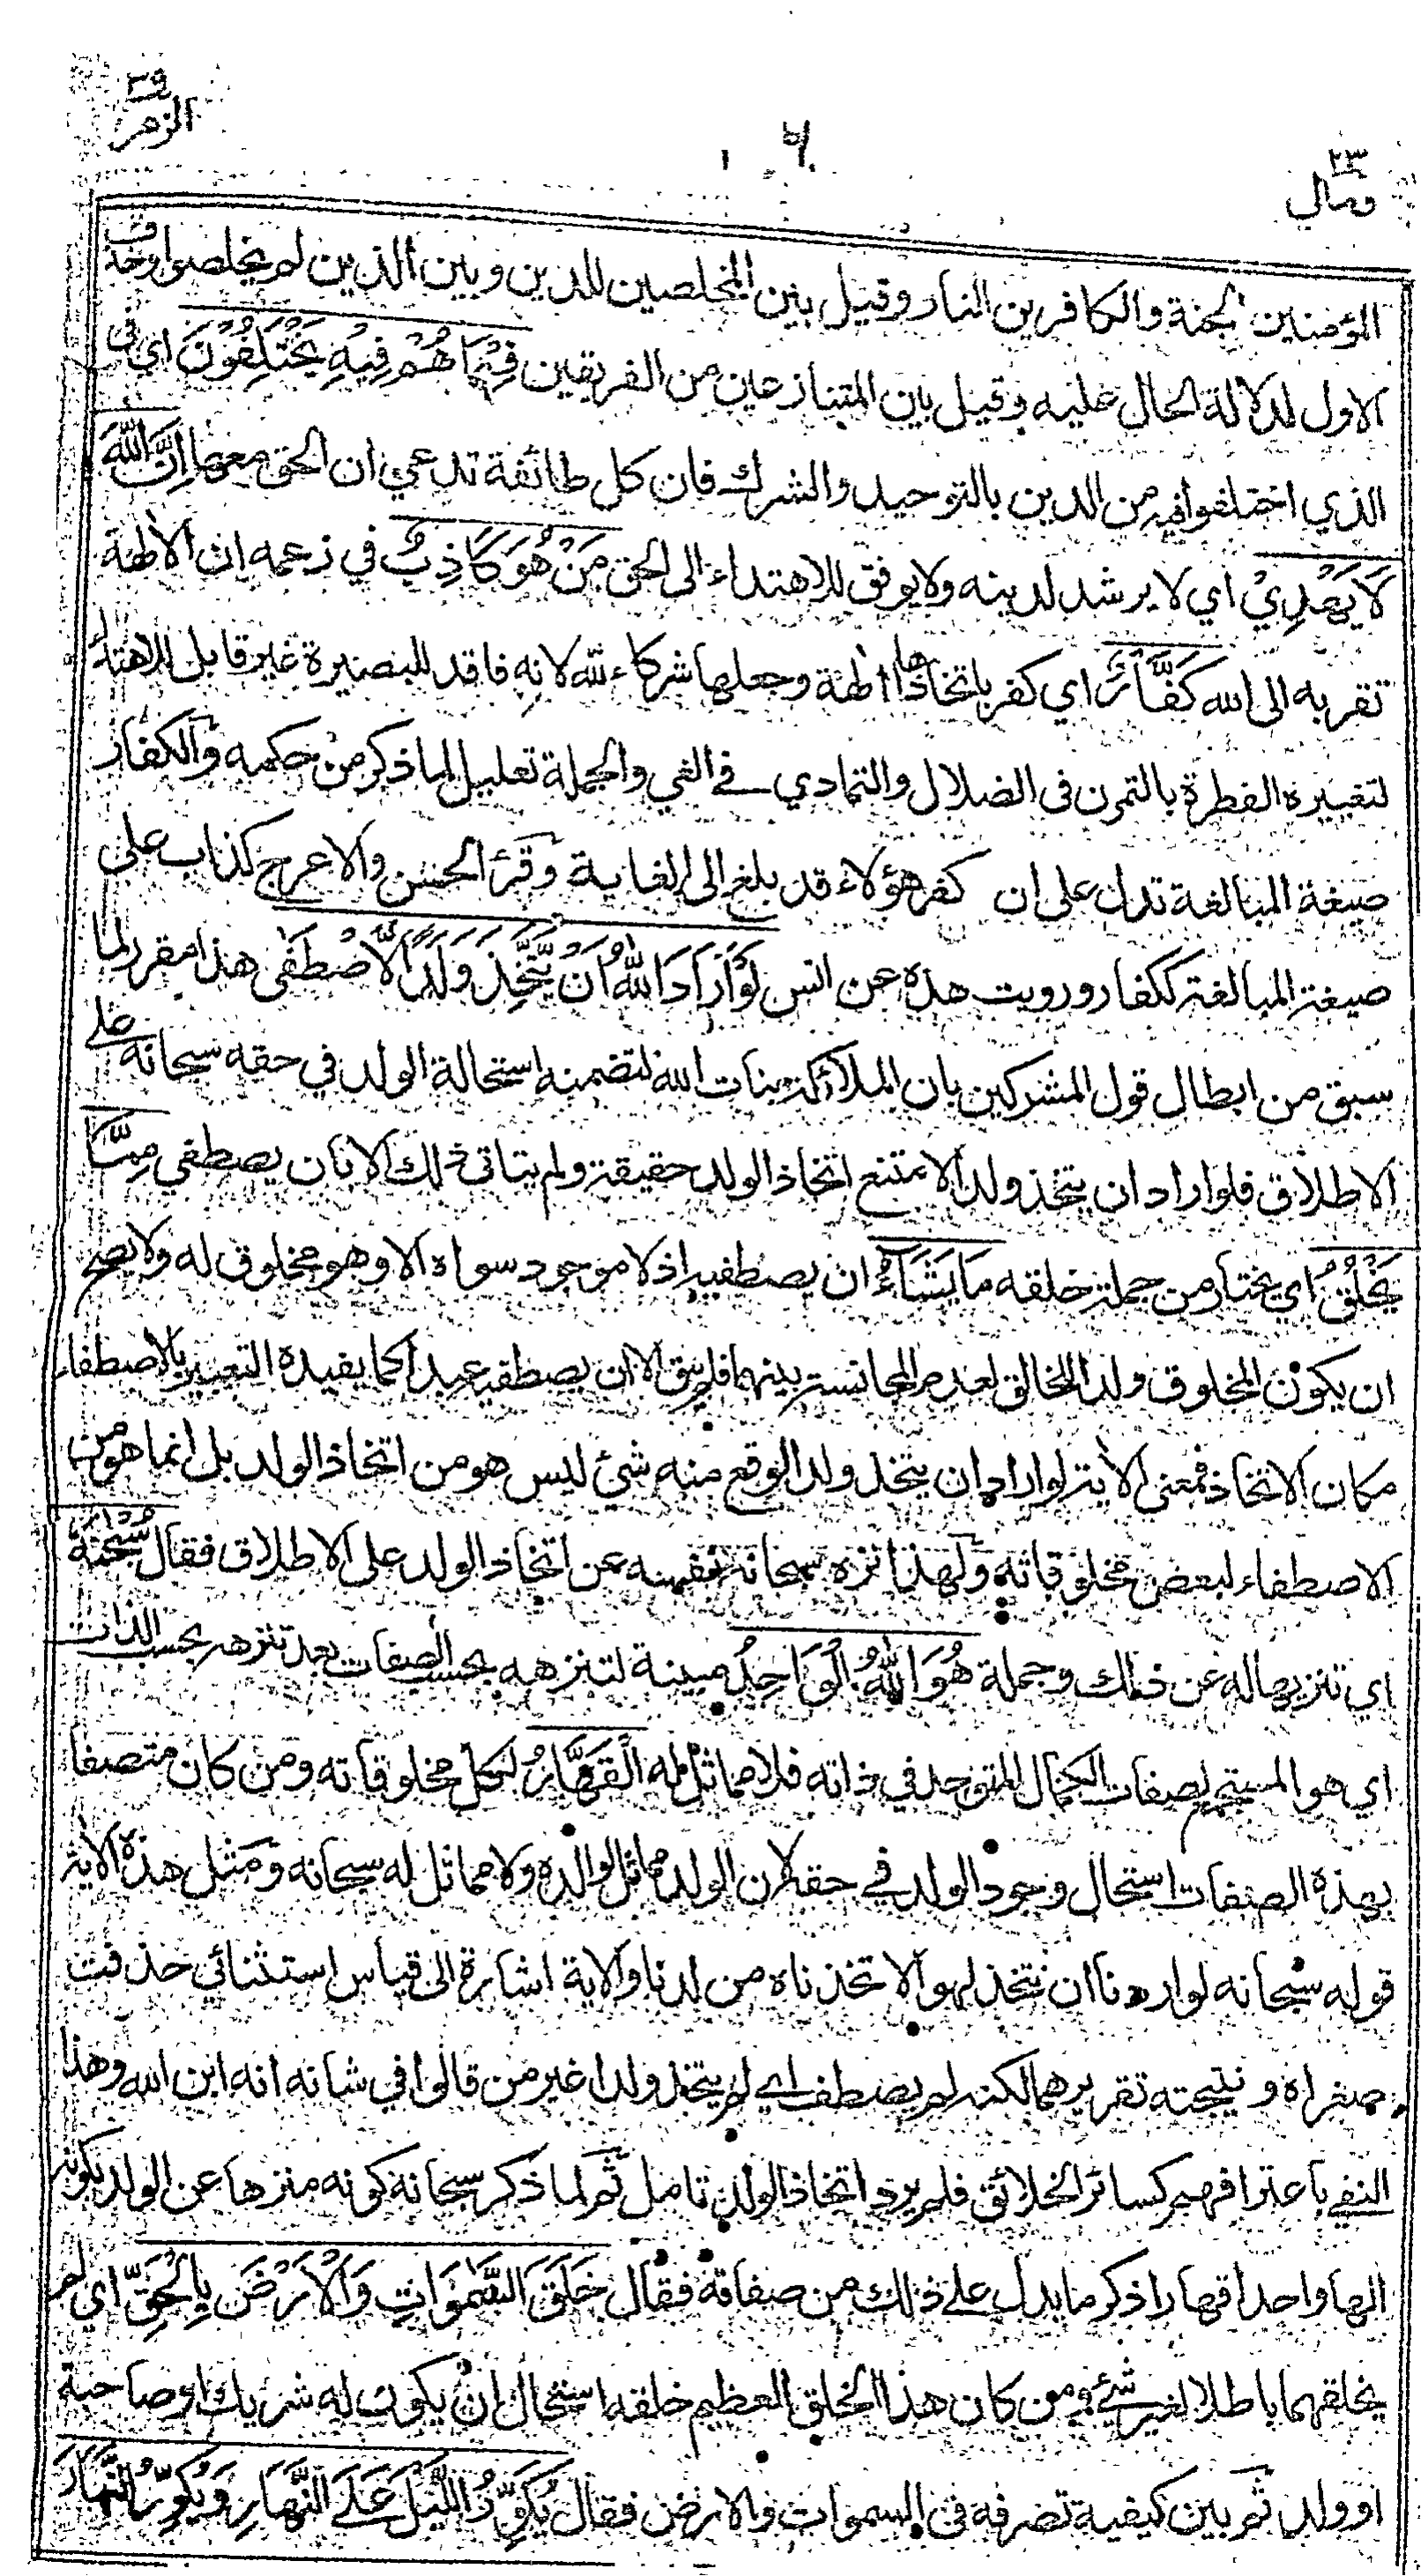 ٣٩
الزمر
٦
٢٣
ومالي
المؤمنين الجنة والكافرين النار وقيل بين المخلصين للدين وبين الذين لم يخلصوا وحذف
الاول لدلالة الحال عليه وقيل بين المتنازعين من الفريقين فِيْمَا هُمْ فِيْهِ يَخْتَلِفُوْنَ اي في
الذي اختلفوا فيه من الدين بالتوحيد والشرك فان كل طائفة تدعي ان الحق معها اِنَّ اللّٰهَ
لَا يَهْدِيْ اي لا يرشد لدينه ولا يوفق للاهتداء الى الحق مَنْ هُوَ كَاذِبٌ في زعمه ان الألهة
تقربه الى الله كَفَّارٌ اي كفر باتخاذها ألهة وجعلها شركاء لله لانه فاقد للبصيرة غير قابل للاهتداء
لتغييره الفطرة بالتمرن في الضلال والتمادي في الغي والجملة تعليل لما ذكر من حكمه والكفار
صيغة المبالغة تدل على ان كفر هؤلاء قد بلغ الى الغاية وقرئ الحسن والاعرج كذاب على
صيغة المبالغة ككفار ورويت هذه عن انس لَوْ اَرَادَ اللّٰهُ اَنْ يَّتَّخِذَ وَلَدًا لَّاصْطَفٰى هذا مقرر لما
سبق من ابطال قول المشركين بان الملائكة بنات الله لتضمنه استحالة الولد في حقه سبحانه على
الاطلاق فلو اراد ان يتخذ ولدا لامتنع اتخاذ الولد حقيقة ولم يتاتى ذلك الا بان يصطفي مِمَّا
يَخْلُقُ اي يختار من جملة خلقه مَا يَشَاءُ ان يصطفيه اذ لا موجود سواه الا وهو مخلوق له ولا يصح
ان يكون المخلوق ولدا للخالق لعدم المجانسة بينهما فلم يبق الا ان يصطفيه عبدا كما يفيده التعبير بالاصطفاء
مكان الاتخاذ فمعنى الأية لو اراد ان يتخذ ولدا لوقع منه شئ ليس هو من اتخاذ الولد بل انما هو من
الاصطفاء لبعض مخلوقاته ولهذا نزه سبحانه نفسه عن اتخاذ الولد على الاطلاق فقال سُبْحٰنَهُ
اي تنزيها له عن ذلك وجملة هُوَ اللّٰهُ الْوَاحِدُ مبينة لتنزهه بحسب الصفات بعد تنزهه بحسب الذات
اي هو المستجمع لصفات الكمال المتوحد في ذاته فلا مماثل له الْقَهَّارُ لكل مخلوقاته ومن كان متصفا
بهذه الصفات استحال وجود الولد في حقه لان الولد مماثل لوالده ولا مماثل له سبحانه ومثل هذه الأية
قوله سبحانه لو اردنا ان نتخذ لهوا لاتخذناه من لدنا والاية اشارة الى قياس استثنائي حذفت
صغراه ونتيجته تقريرهما لكنه لم يصطف اي لم يتخذ ولدا غير من قالوا في شانه انه ابن الله وهذا
النفي باعترافهم كسائر الخلائق فلم يرد اتخاذ الولد تامل ثم لما ذكر سبحانه كونه منزها عن الولد بكونه
الها واحدا قهارا ذكر ما يدل على ذلك من صفاته فقال خَلَقَ السَّمٰوَاتِ وَالْاَرْضَ بِالْحَقِّ اي لم
يخلقهما باطلا لغير شئ ومن كان هذا الخلق العظيم خلقه استحال ان يكون له شريك او صاحبة
او ولد ثم بين كيفية تصرفه في السموات والارض فقال يُكَوِّرُ اللَّيْلَ عَلَى النَّهَارِ وَيُكَوِّرُ النَّهَارَ